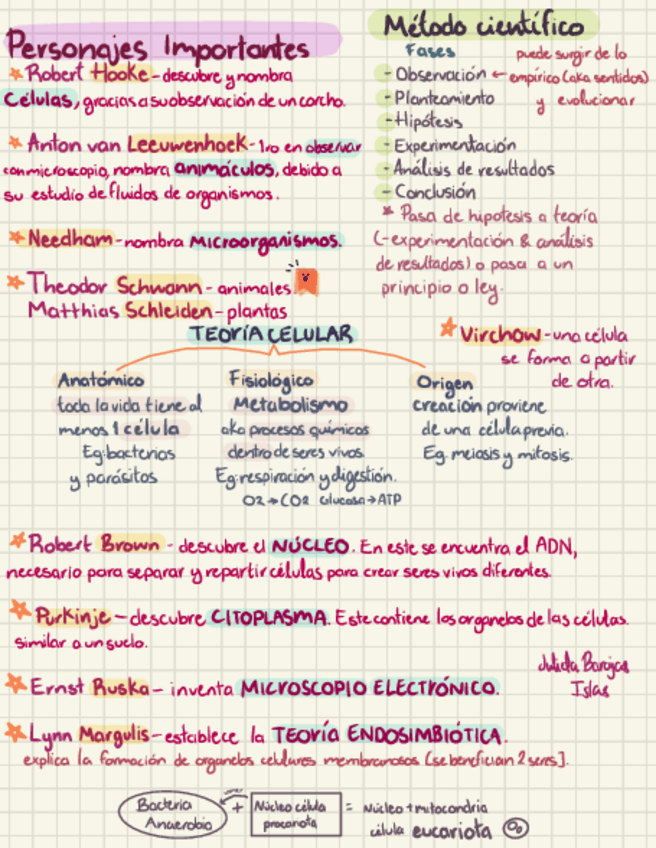 Personajes Importantes
Robert Hooke - descubre y nombra
Células, gracias a su observación de un corcho.
Anton van Leeuwenhoek - 1ro en observar
con microscopio, nombra animáculos, debido a
su estudio de fluidos de organismos.
Needham - nombra Microorganismos.
Theodor Schwann - animales
Matthias Schleiden - plantas
Método científico
Fases
- Observación ← empírico (aka sentidos)
puede surgir de lo
y evolucionar
- Planteamiento
- Hipótesis
- Experimentación
- Análisis de resultados
- Conclusión
* Pasa de hipotesis a teoría
(-experimentación & análisis
de resultados) o pasa a un
principio o ley.
TEORÍA CELULAR
Virchow - una célula
se forma a partir
de otra.
Anatómico
toda la vida tiene al
menos 1 célula
Eg: bacterias
y parásitos
Fisiológico
Metabolismo
aka procesos químicos
dentro de seres vivos.
Eg: respiración y digestión.
O2 → CO2 Glucosa → ATP
Origen
creación proviene
de una célula previa.
Eg. meiosis y mitosis.
Robert Brown - descubre el NÚCLEO. En este se encuentra el ADN,
necesario para separar y repartir células para crear seres vivos diferentes.
Purkinje - descubre CITOPLASMA. Este contiene los organelos de las células.
similar a un suelo.
Julieta Barajas
Islas
Ernst Ruska - inventa MICROSCOPIO ELECTRÓNICO.
Lynn Margulis - establece la TEORÍA ENDOSIMBIÓTICA.
explica la formación de organelos celulares membranosos [se benefician 2 seres].
Bacteria
Anaerobia
+
Núcleo célula
procariota
= Núcleo + mitocondria
célula eucariota